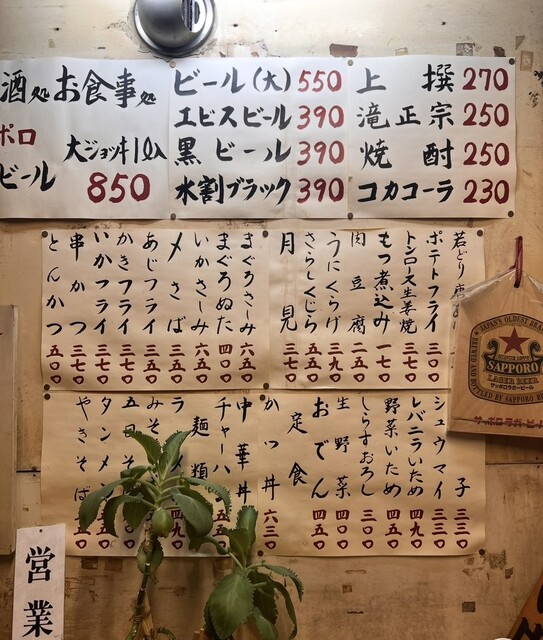 酒処お食事処
ポロ
ビール
大ジョッキ1ℓ入
850
ビール(大) 550
エビスビール 390
黒ビール 390
水割ブラック 390
上撰 270
滝正宗 250
焼酎 250
コカコーラ 230
若どり
ポテトフライ 三一〇
トンロース生姜焼 三七〇
もつ煮込み 一七〇
肉豆腐 二五〇
うにくらげ 三九〇
さらしくじら 五五〇
月見 三七〇
まぐろさしみ 六五〇
まぐろぬた 四〇〇
いかさしみ 六五〇
〆さば 三五〇
あじフライ 三五〇
かきフライ 三七〇
いかフライ 三七〇
串かつ 三七〇
とんかつ 五〇〇
子 三三〇
シュウマイ 三三〇
レバニラいため 四九〇
野菜いため 四五〇
しらすおろし 三〇〇
生野菜 四〇〇
おでん 四五〇
定食
かつ丼 六三〇
中華丼
チャーハ
麺類
ラ
みそ
五目
タンメ
やきそば
営業
JAPAN'S OLDEST BRAND
SAPPORO
LAGER BEER
サッポロラガービール
サッポロラガービー